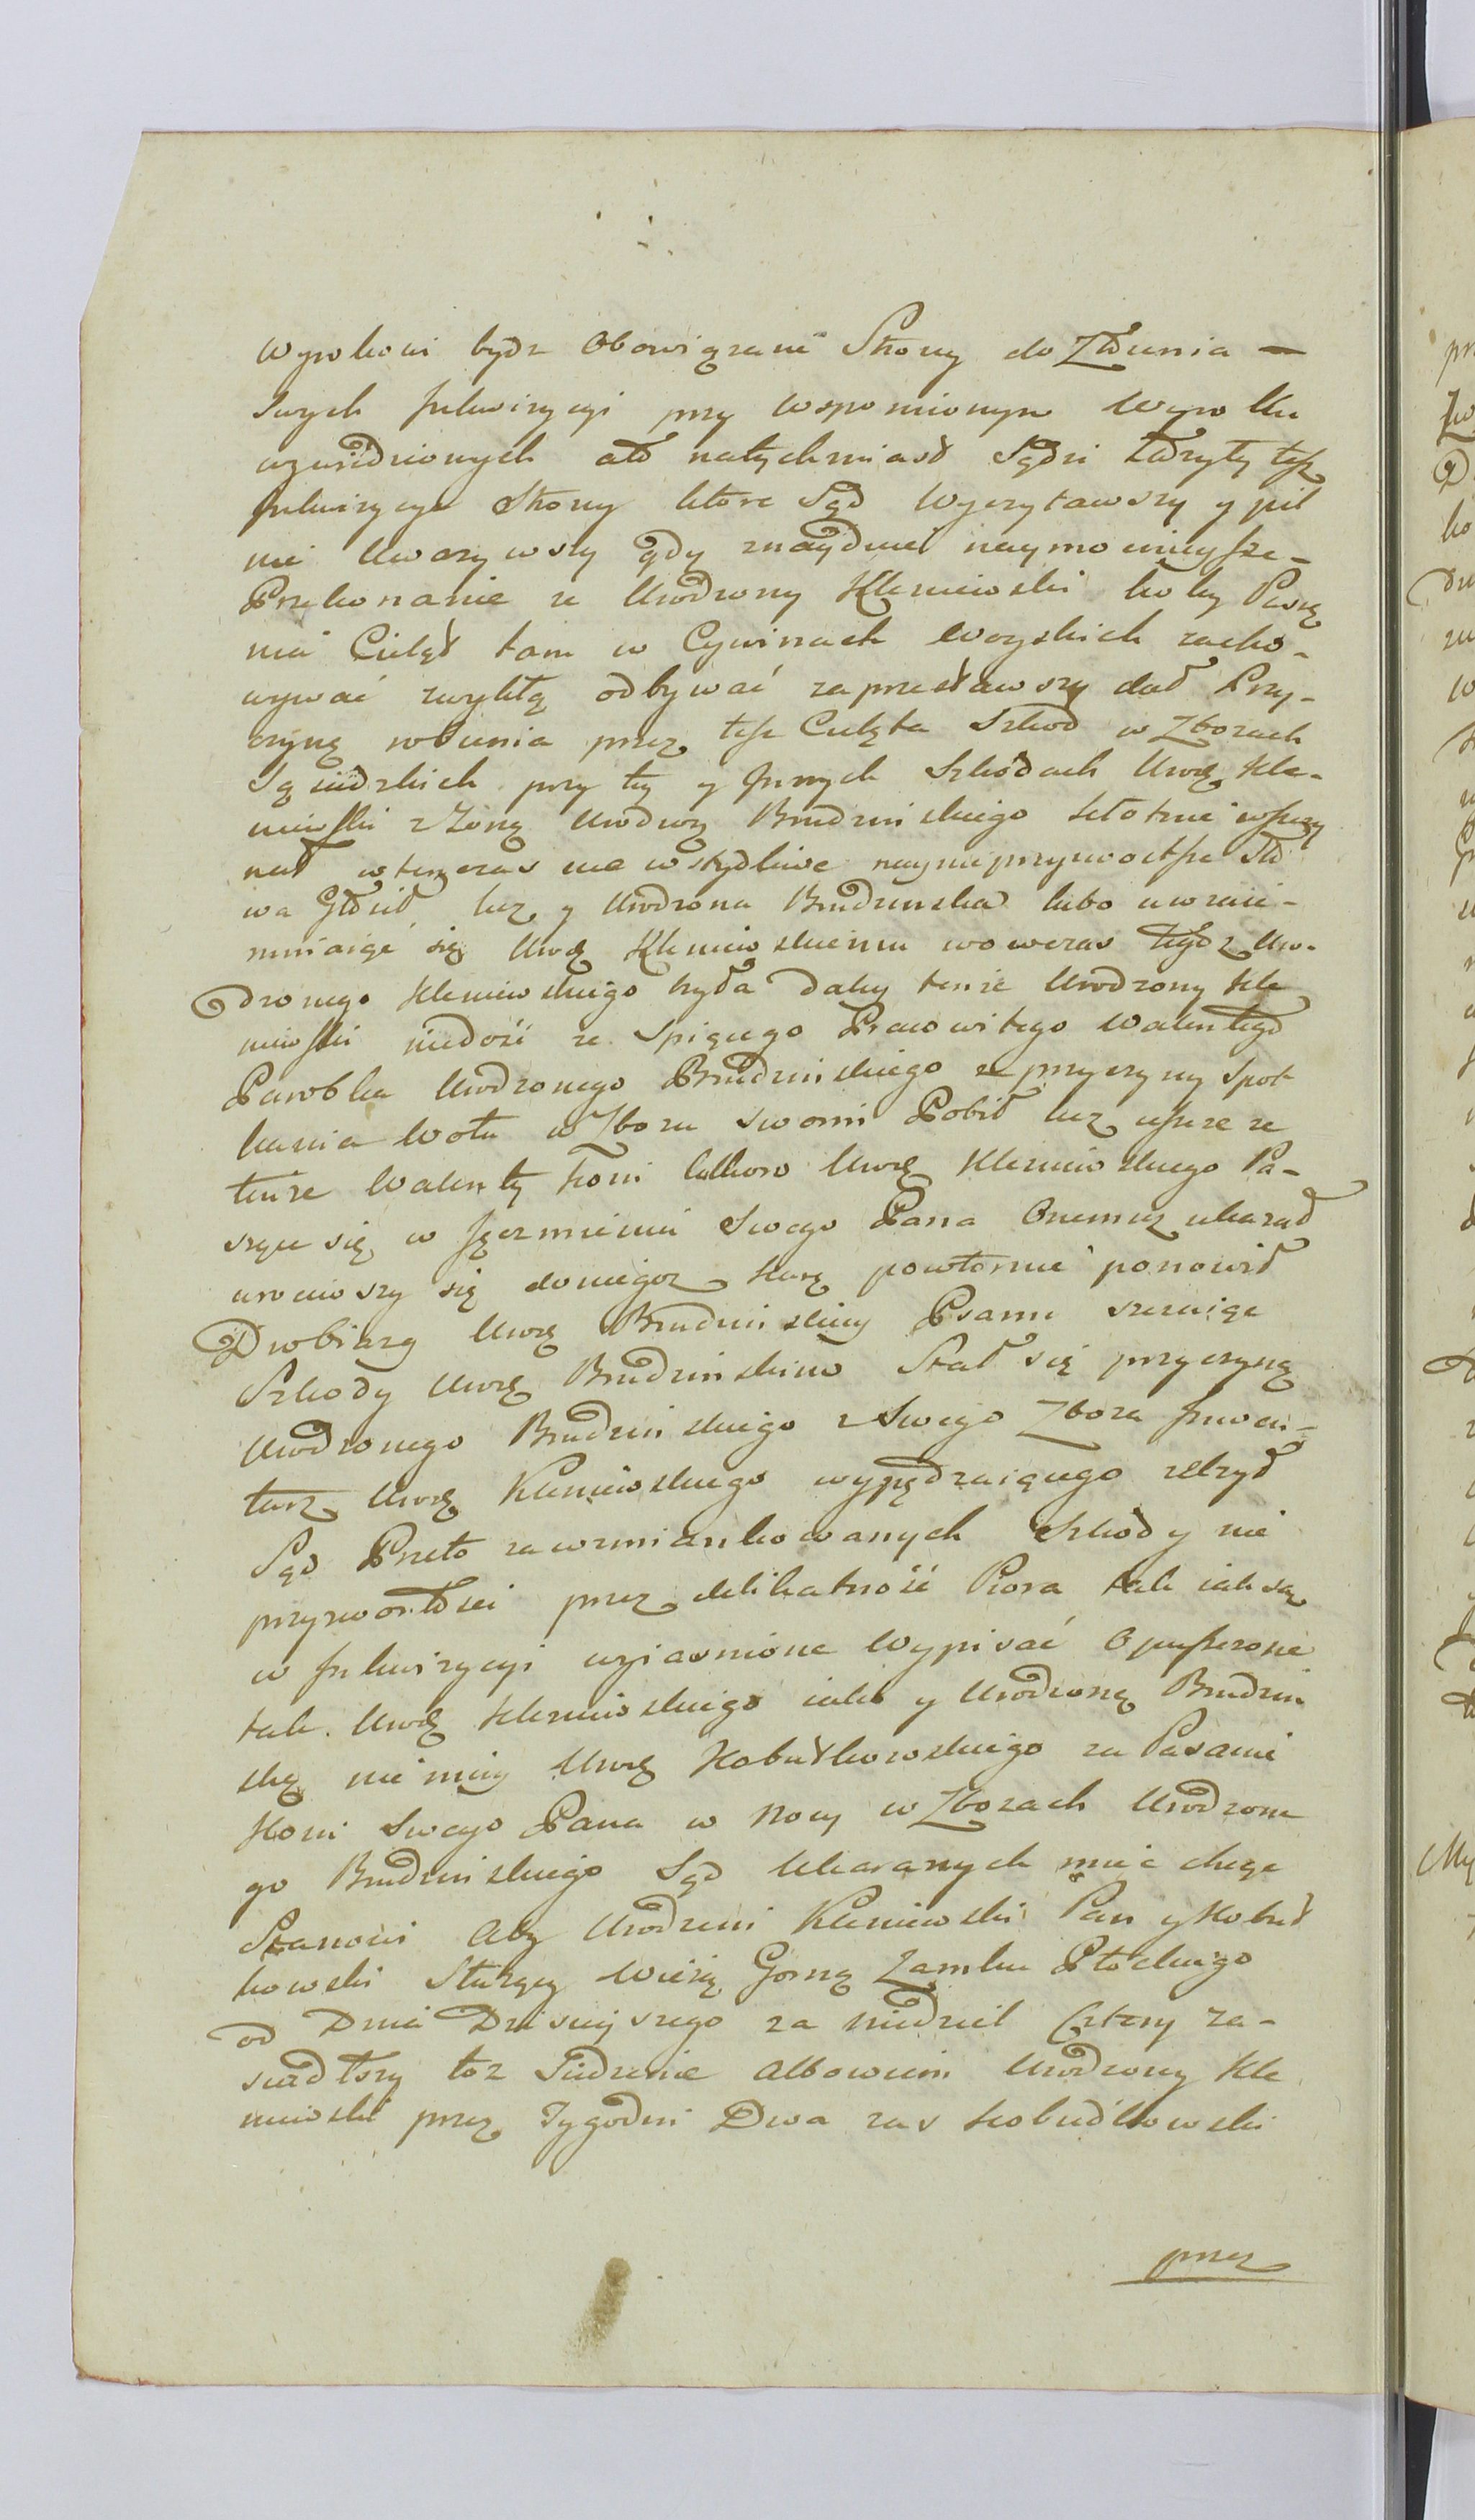 Wyrokowi bydz Obowiązani Strony do Złżenia —
Swych Inkwizycyi przy wspomnionym Wyroku
uzewidzionych ato natychmiast Sądzi Zdzyły też
Inkwizycye Strony które Sąd Wyczytawszy y pil
nie Uważywszy gdy znayduie naymocnieysze-
Przekonanie ze Urodzony Kleniewski koley Paszę
nia Cieląt tam w Cywinach Woyskich zacho-
wywać zwykłą odbywać zaprzestawszy dał Przy-
czynę robienia przez też Cielęta Szkod w Zbozach
Sąsiedzkich przy tey y Innych Szkodach Urodz. Kle-
niewski z Żoną Urodzo Brudzinskiego kłotnie wszczy
nał wtenczas nie wstydliwe naynieprzyzwoitsze Sło
wa Głosił lecz y Urodzona Brudzinska lubo uwzaie-
mniaiąc się Urodz Kleniewskiemu wowczas tegoz Uro-
dzonego Kleniewskiego łzyła daley tenze Urodzony Kle
niewski niedość ze Spiącego Pracowitego Walentego
Parobka Urodzonego Brudzinskiego z przyczyny Spot
kania Wołu w Zbozu Swoim Pobił lecz iescze ze
tenze Walenty Koni kilkoro Urodz Kleniewskiego Pa-
szące się w Jęczmieniu Swego Pana Onemuz ukazał
wrociwszy się doniegoz karę powtornie ponowił
Drobiazg Urodz Brudzinskiey Psami szczuiąc
Szkody Urodz Brudzinskim Stał się przyczyną
Urodzonego Brudzinskiego z Swego Zboza Inwen-
tarz Urodz Kleniewskiego wypędzaiącego zelzył
Sąd Przeto za wzmiankowanych Szkody nie
przyzwoitości przez delikatność Piora tak iak są
w Inkwizycyi wyiasnione Wypisać Opuszczone
tak Urodz Kleniewskiego iako y Urodzoną Brudzin
ską nie mniey Urodz Kobuszkowskiego za Pasanie
Koni Swego Pana w Nocy w Zbozach Urodzone
go Brudzinskiego Sąd Ukaranych mieć chcąc
Stanowi Aby Urodzeni Kleniewski Pan y Kobuł
kowski Służący Wieżą Gorną Zamku Płockiego
od Dnia Dzisieyszego za niedziel Cztery za-
siedli y toz Siedzenie Albowiem Urodzony Kle
niewski przez Tygodni Dwa zas Kobułkowski
przez